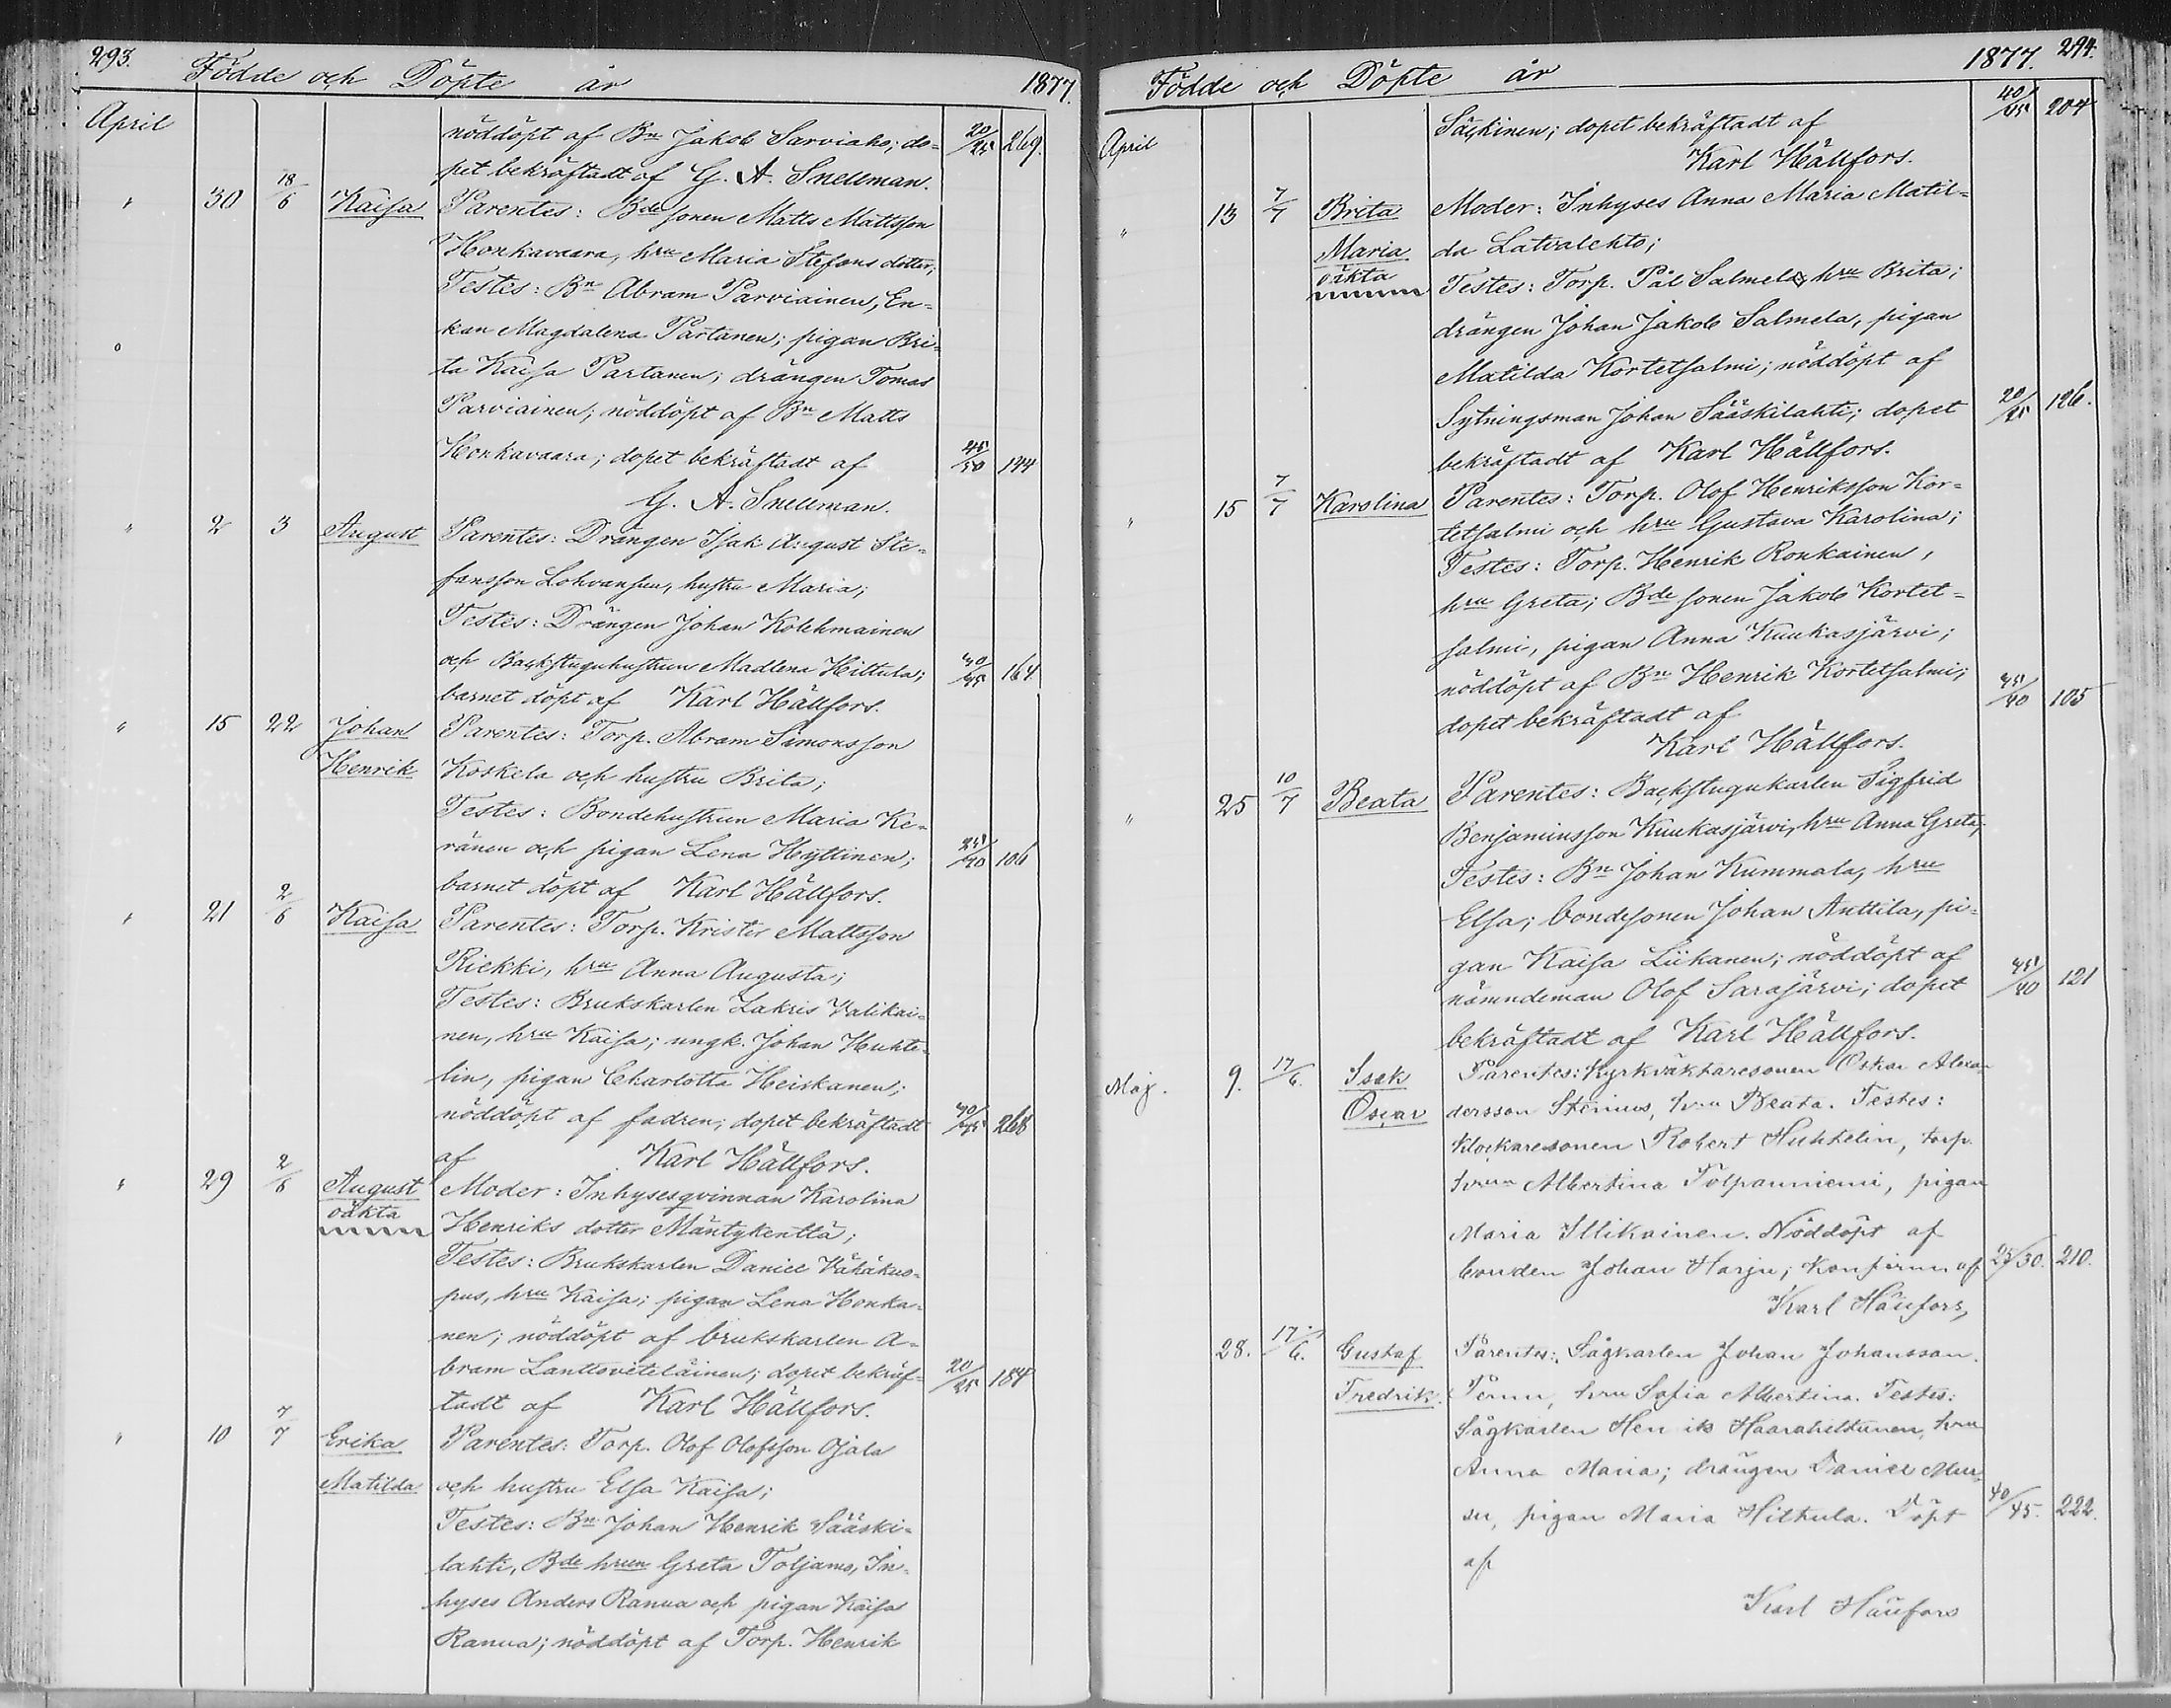 293.
Födde och Döpte år 1877.
April
nöddöpt af Bn Jakob Sarviaho; do- 20/25 269.
pet bekräftadt af G. A. Snellman.
" 30 18/6 Kaisa Parentes: Bdesonen Matts Mattsson
Honkavaara, hru Maria Stefans dotter;
Testes: Bn Abram Parviainen, En-
kan Magdalena Partanen; pigan Bri-
ta Kaisa Partanen; drängen Tomas
Parviainen; nöddöpt af Bn Matts
Honkavaara; dopet bekräftadt af 45/50 144
G. A. Snellman.
" 2 3 August Parentes: Drängen Isak August Ste-
fansson Lohvansuu, hustru Maria;
Testes: Drängen Johan Kolehmainen
och Backstuguhustrun Madlena Hiltula; 40/45 164
barnet döpt af Karl Hällfors.
" 15 22 Johan Parentes: Torp. Abram Simonsson
Henrik Koskela och hustru Brita;
Testes: Bondehustrun Maria Ke-
ränen och pigan Lena Hyttinen; 106
barnet döpt af Karl Hällfors.
" 21 2/6 Kaisa Parentes: Torp. Krister Mattsson
Riekki, hru Anna Augusta;
Testes: Brukskarlen Zakris Valikai-
nen, hru Kaisa; ungk. Johan Huhte-
lin, pigan Charlotta Heiskanen;
nöddöpt af fadren; dopet bekräftadt 40/45 268
af Karl Hällfors.
" 29 2/6 August Moder: Inhysesqvinnan Karolina
oäkta Henriks dotter Mäntykenttä;
Testes: Brukskarlen Daniel Vähäkuo-
pus, hru Kaisa; pigan Lena Honka-
nen; nöddöpt af brukskarlen A-
bram Lanttoviteläinen; dopet bekräf- 20/25 184
tadt af Karl Hällfors.
" 10 7/7 Erika Parentes: Torp. Olof Olofsson Ojala
Matilda och hustru Elsa Kaisa;
Testes: Bn Johan Henrik Sääski-
lahti, Bde hrun Greta Toljamo, In-
hyses Anders Ranua och pigan Kaisa
Ranua; nöddöpt af Torp. Henrik
294.
Födde och Döpte år 1877.
April
Säckinen; dopet bekräftadt af 40/45 204
Karl Hällfors.
" 13 7/7 Brita Moder: Inhyses Anna Maria Matil-
Maria da Latvalehto;
oäkta Testes: Torp. Pål Salmela, hru Brita;
drängen Johan Jakob Salmela, pigan
Matilda Kortetsalmi; nöddöpt af
Sytningsman Johan Sääskilahti; dopet 20/25 126.
bekräftadt af Karl Hällfors.
" 15 7/7 Karolina Parentes: Torp. Olof Henriksson Kor-
tetsalmi och hru Gustava Karolina;
Testes: Torp. Henrik Ronkainen,
hru Greta; Bde sonen Jakob Kortet-
salmi, pigan Anna Kuukasjärvi;
nöddöpt af Bn Henrik Kortetsalmi; 105
dopet bekräftadt af
Karl Hällfors.
" 25 10/7 Beata Parentes: Backstugukarlen Sigfrid
Benjaminsson Kuukasjärvi, hru Anna Greta;
Testes: Bn Johan Kummala, hru
Elsa; bondesonen Johan Anttila, pi-
gan Kaisa Liikanen; nöddöpt af
nämndeman Olof Sarajärvi; dopet 121
bekräftadt af Karl Hällfors.
Maj. 9. 17/6. Isak Parentes: Kyrkväktaresonen Oskar Alexan-
Oscar dersson Stenius, hru Beata. Testes:
Klockaresonen Robert Huhtelin, torp.
hrun Albertina Tolpanniemi, pigan
Maria Illikainen. Nöddöpt af
bonden Johan Harju; konfirm. af 25/30. 210.
Karl Hällfors,
28. 17/6. Gustaf Parentes: Sågkarlen Johan Johansson
Fredrik. hru Sofia Albertina. Testes:
Sågkarlen Henrik Haarahiltunen, hru
Anna Maria; drängen Daniel Mur-
su, pigan Maria Hiltula. Döpt 40/45. 222.
af
Karl Hällfors